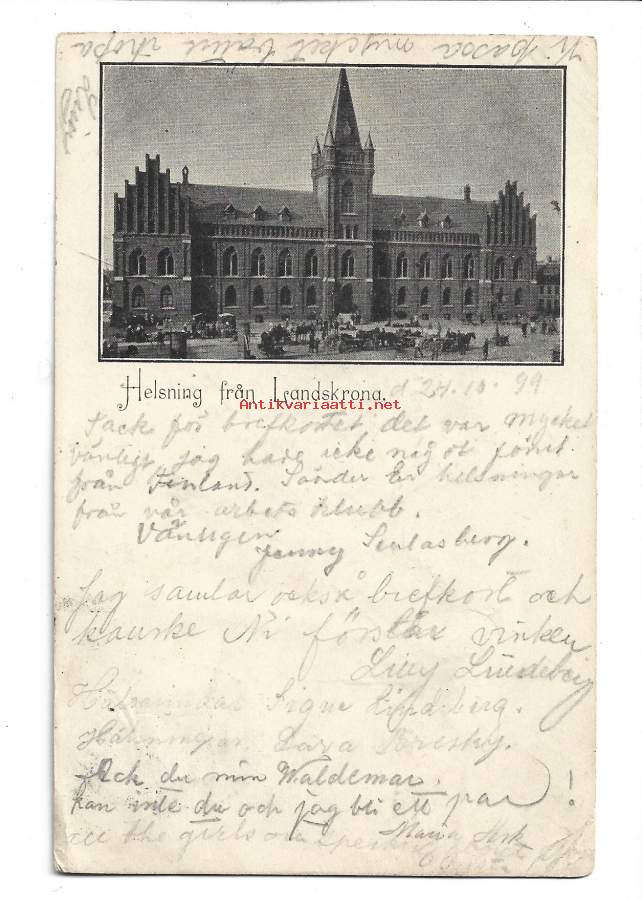 Ni passa mycket bra ihopa
Helsning från Landskrona. d 24.10.99
Antikvariaatti.net
Tack för brefkortet, det var mycket
vänligt jag hade icke något förut
från Finland. Sänder Er helsningar
från vår arbets klubb.
Vänligen
Jenny
Jag samlar också brefkort och
kanske Ni förstår vinken
Lilly Lindeberg
Signe
Hälsningar
Ack du min Waldemar.
kan inte du och jag bli ett par!
all the girls
Maria